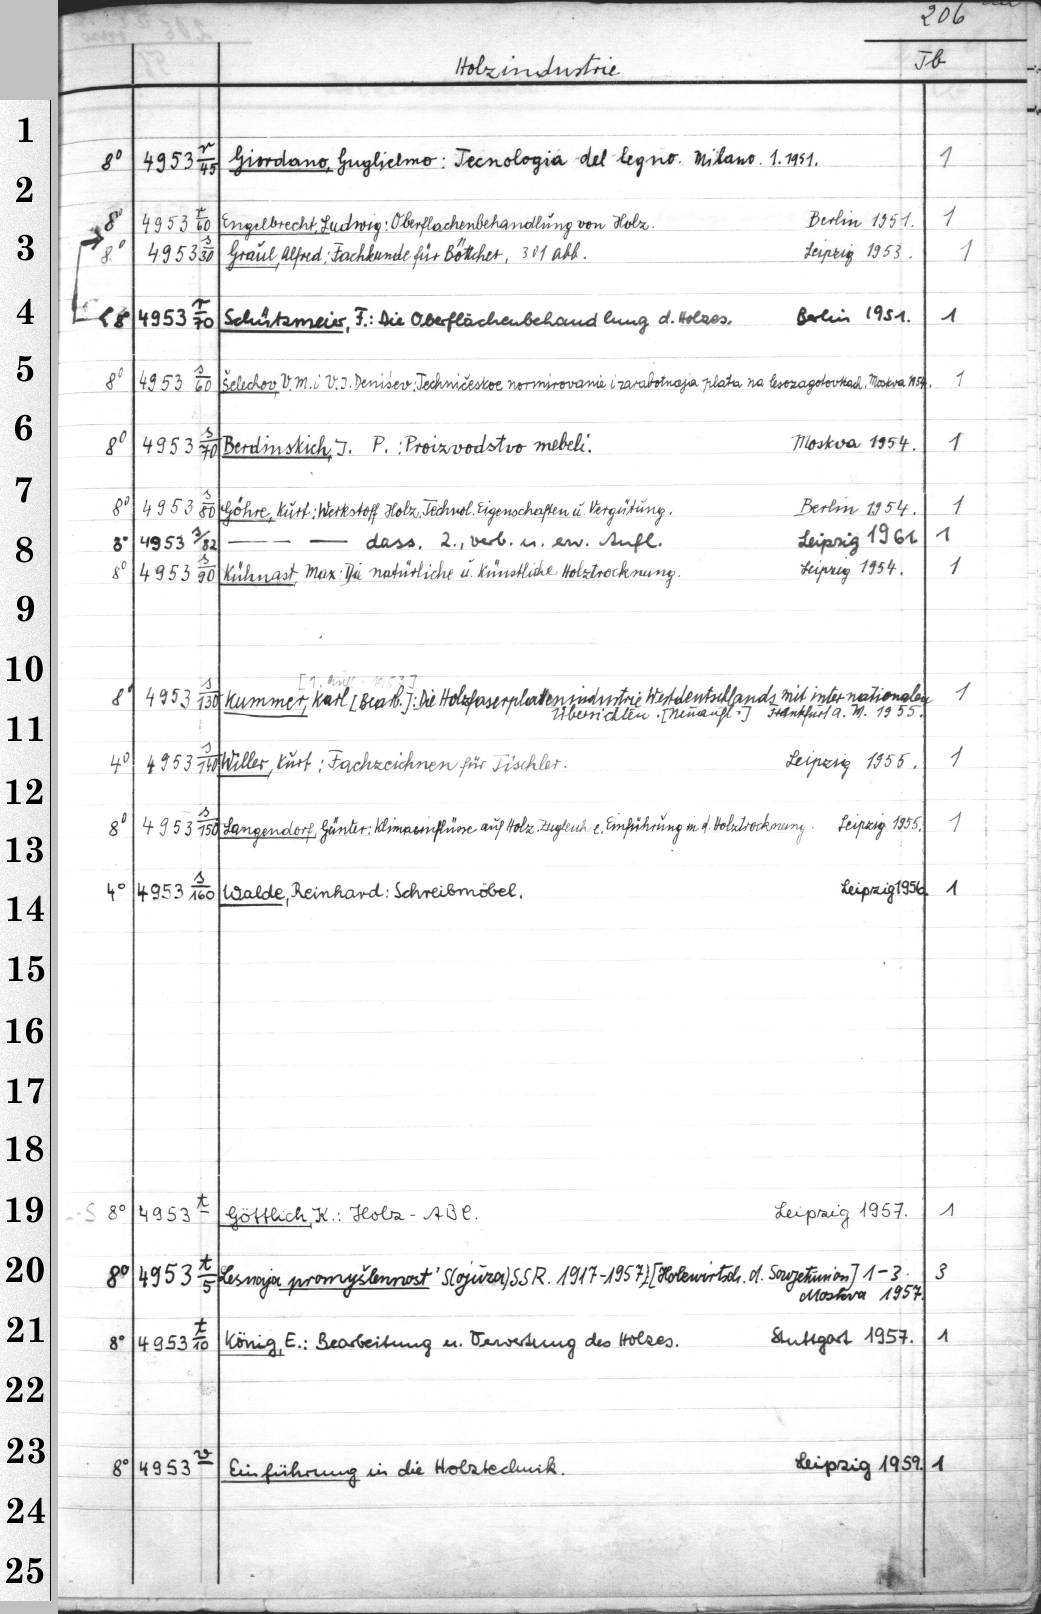 206
Holzindustrie Tb
1
8° 4953 r/45 Giordano, Guglielmo: Tecnologia del legno. Milano. 1. 1951. 1
2
8° 4953 r/60 Engelbrecht, Ludwig: Oberflachenbehandlung von Holz. Berlin 1951. 1
3
8° 4953 s/30 Graul, Alfred: Fachkunde für Böttcher, 301 Abb. Leipzig 1953. 1
4
8° 4953 r/70 Schützmeier, F.: Die Oberflächenbehandlung d. Holzes. Berlin 1951. 1
5
8° 4953 s/60 Šelechov, V. M. i V. I. Denišev: Techničeskoe normirovanie i zarabotnaja plata na lesozagotovkach. Moskva 1954. 1
6
8° 4953 s/70 Berdinskich, I. P.: Proizvodstvo mebeli. Moskva 1954. 1
7
8° 4953 s/80 Göhre, Kurt: Werkstoff Holz. Technol. Eigenschaften u. Vergütung. Berlin 1954. 1
8
8° 4953 s/82 — — dass. 2., verb. u. erw. Aufl. Leipzig 1961 1
8° 4953 s/90 Kühnast, Max: Die natürliche u. künstliche Holztrocknung. Leipzig 1954. 1
9
10
[1. Aufl. 1953]
8° 4953 s/130 Kummer, Karl [Bearb.]: Die Holzfaserplattenindustrie Westdeutschlands mit internationalen 1
Übersichten. [Neuaufl.] Frankfurt a. M. 1955.
11
4° 4953 s/140 Willer, Kurt: Fachzeichnen für Tischler. Leipzig 1955. 1
12
8° 4953 s/150 Langendorf, Günter: Klimaeinflüsse auf Holz. Zugleich e. Einführung in d. Holztrocknung. Leipzig 1955. 1
13
4° 4953 s/160 Walde, Reinhard: Schreibmöbel. Leipzig 1956. 1
14
15
16
17
18
19
8° 4953 t Göttlich, K.: Holz-ABC. Leipzig 1957. 1
20
8° 4953 t/5 Lesnaja promyšlennost' S(ojuza) SSR. 1917-1957. [Holzwirtsch. d. Sowjetunion] 1-3. 3
Moskva 1957.
21
8° 4953 t/10 König, E.: Bearbeitung u. Verwertung des Holzes. Stuttgart 1957. 1
22
23
8° 4953 v Einführung in die Holztechnik. Leipzig 1959. 1
24
25